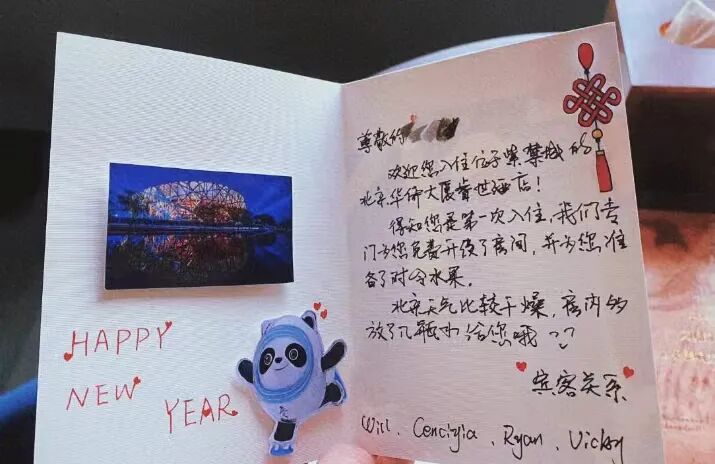 HAPPY
NEW
YEAR
尊敬的
欢迎您入住位于紫禁城的
北京华侨大厦睿世酒店!
得知您是第一次入住,我们专
门为您免费升级了房间,并为您准
备了时令水果。
北京天气比较干燥,房内多
放了几瓶水给您哦
宾客关系
Will、Cencizia、Ryan、Vicky